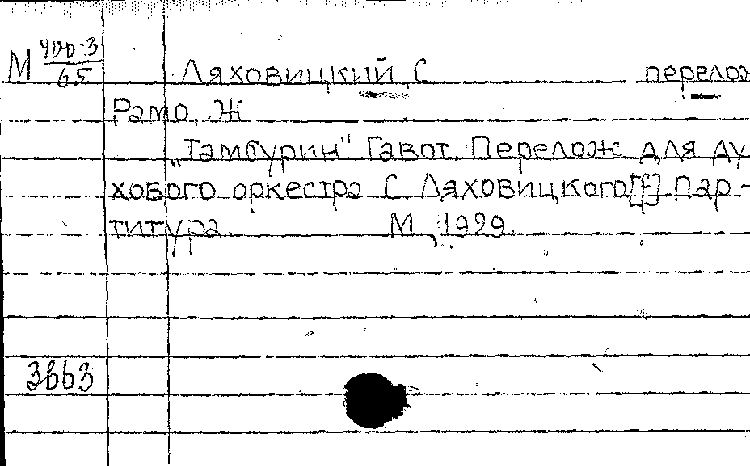 М 400-3/65 Ляховицкий, С перелож
Рамо, Ж
„Тамбурин" Гавот. Перелож для ду
хового оркестра С Ляховицкого. Пар-
титура М., 1929.
3863